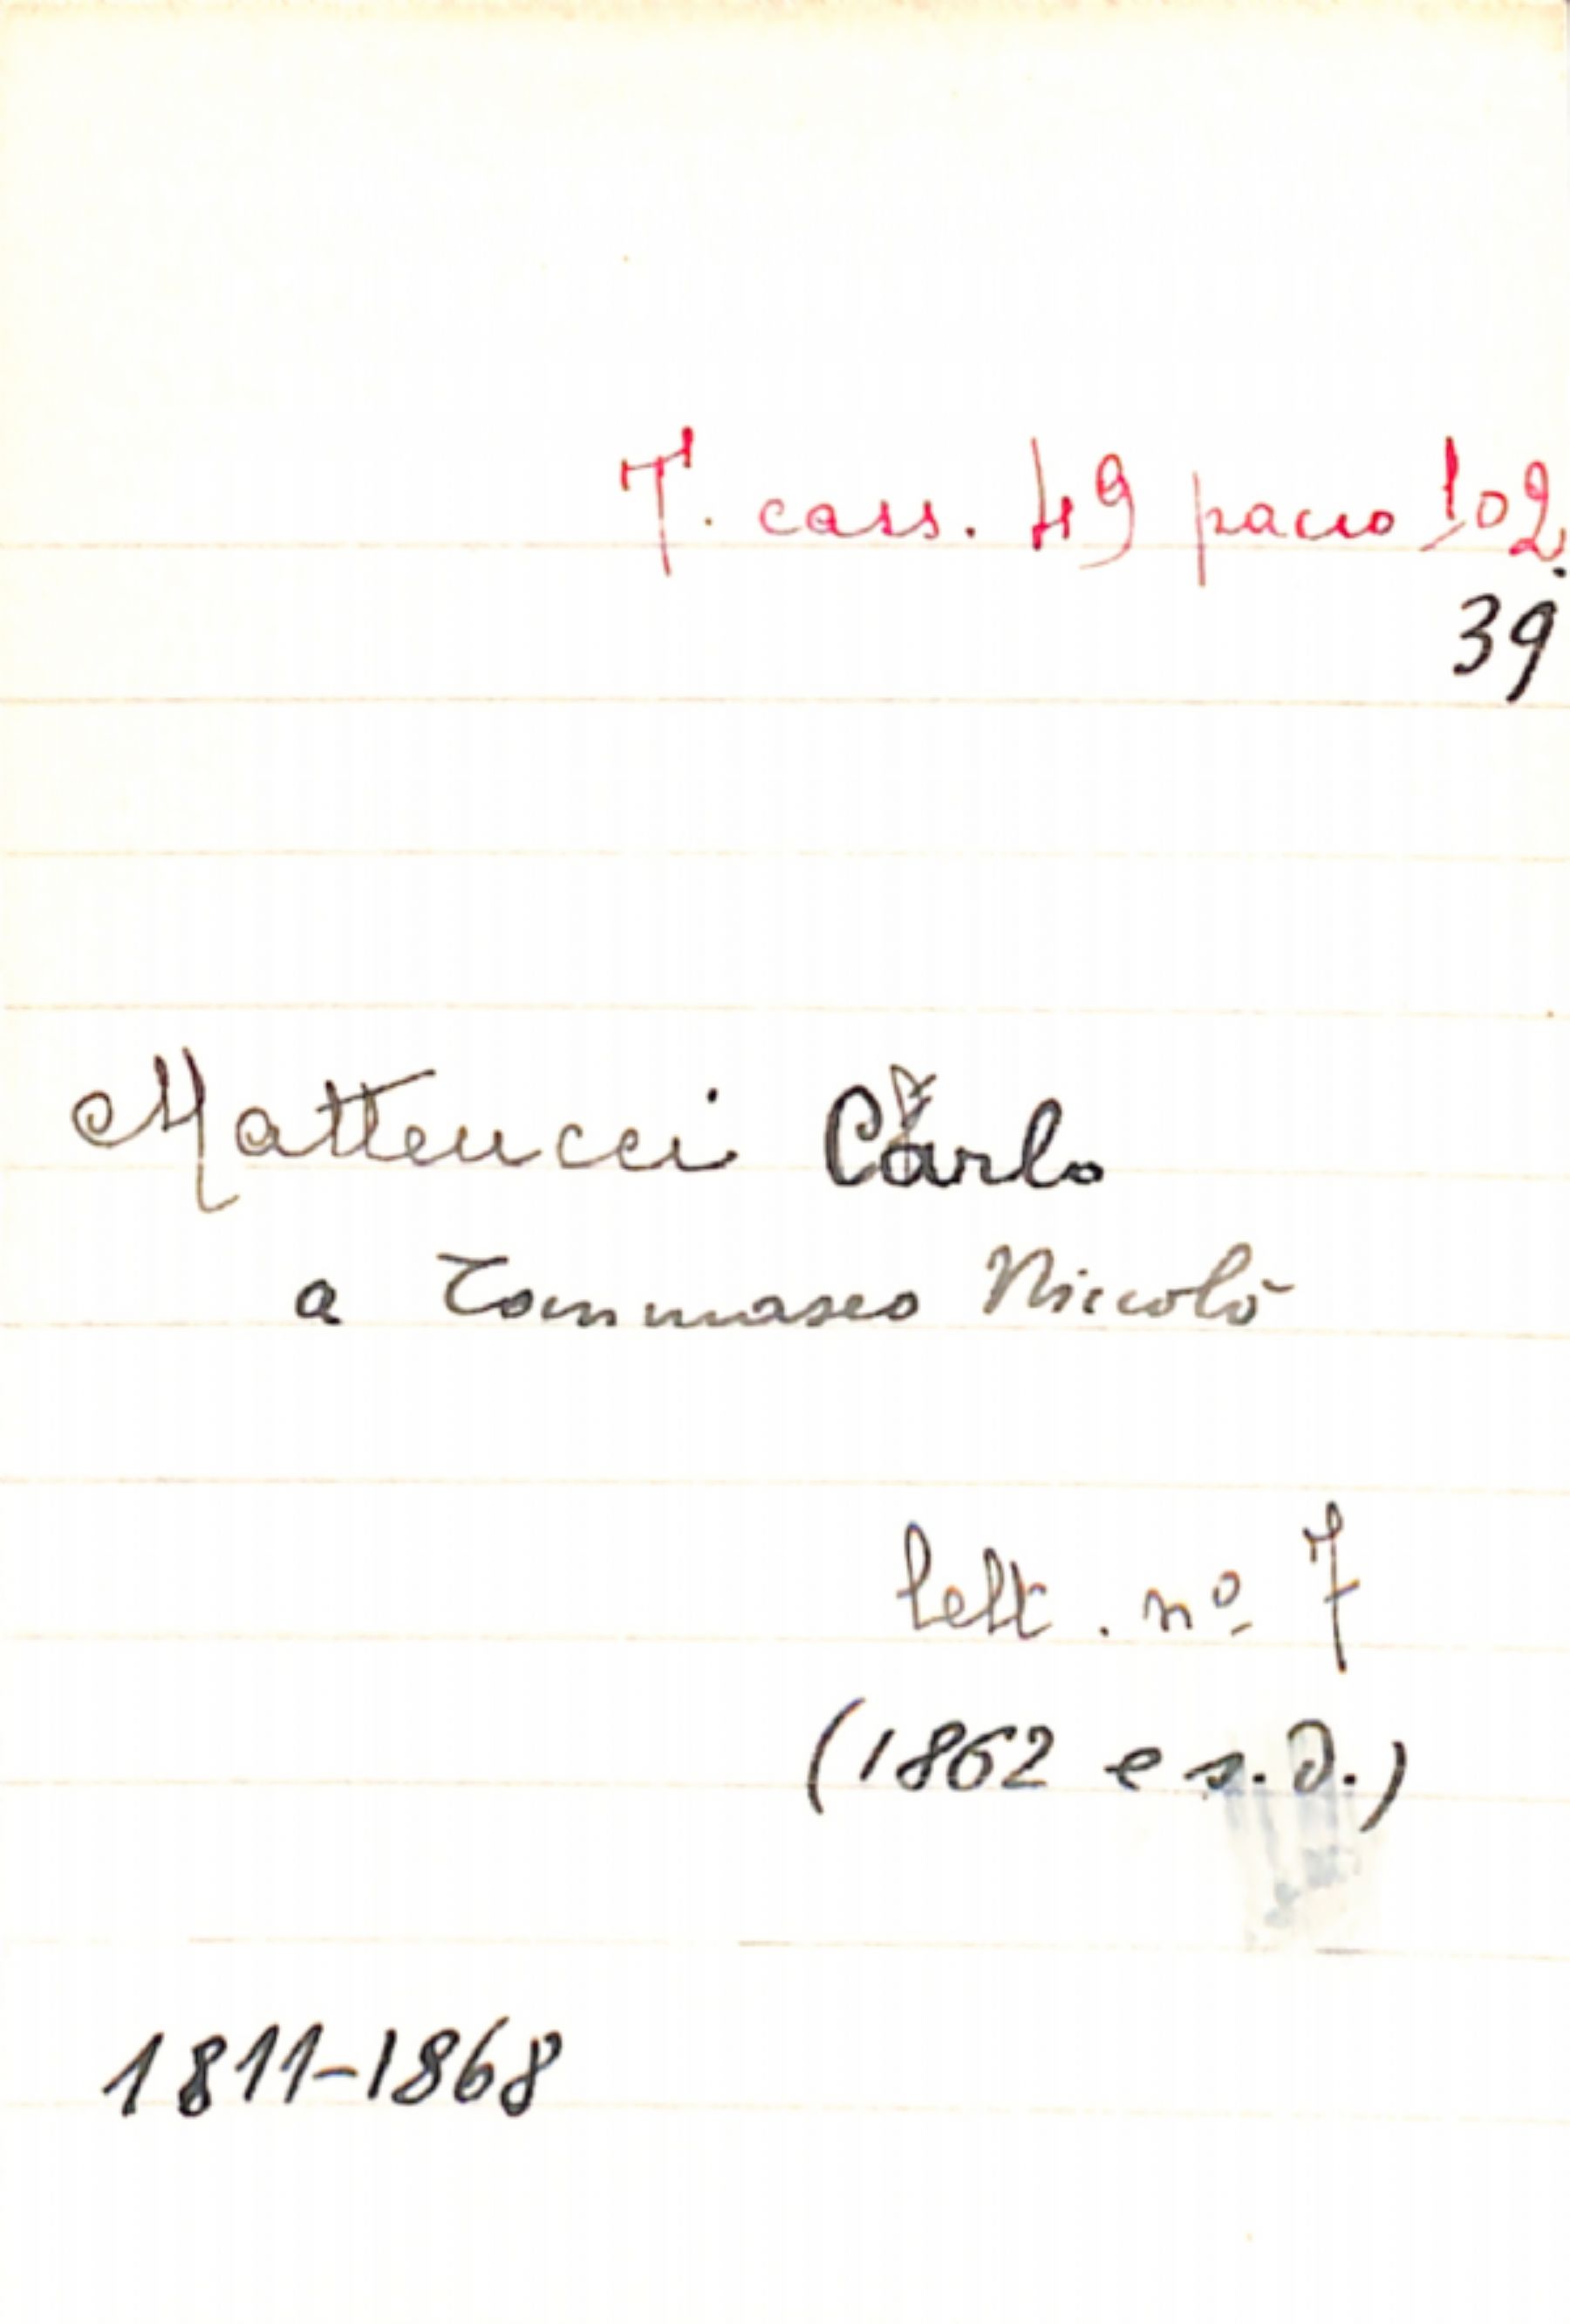 T. cass. 49 pacco 102.
39
Matteucci Carlo
a Tommaseo Niccolò
lett. nº 7
(1862 e s.d.)
1811-1868